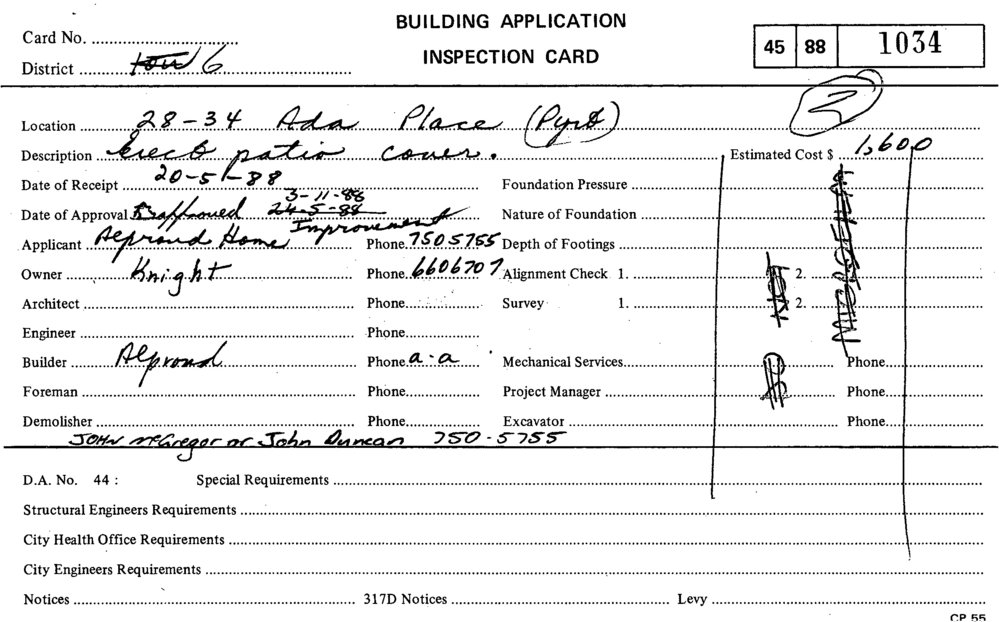 BUILDING APPLICATION
INSPECTION CARD
Card No.
45 88 1034
District 6
2
Location 28-34 Ada Place (Pyrt)
Description Erect patio cover. Estimated Cost $ 1,600
Date of Receipt 20-5-88 Foundation Pressure
3-11-88
Date of Approval Disapproved 24-5-88 Nature of Foundation
Applicant Alproud Home Improvement Phone 7505755 Depth of Footings
Owner Knight Phone 6606707 Alignment Check 1. 2.
Architect Phone Survey 1. 2.
Engineer Phone
Builder Alproud Phone a.a Mechanical Services Phone
Foreman Phone Project Manager Phone
Demolisher Phone Excavator Phone
John McGregor or John Duncan 750-5755
D.A. No. 44 : Special Requirements
Structural Engineers Requirements
City Health Office Requirements
City Engineers Requirements
Notices 317D Notices Levy
CP 55